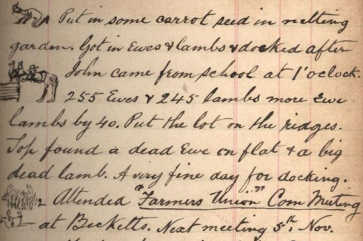 Put in some carrot seed in netting
garden. Got in Ewes & lambs & docked after
John came from school at 1 o'clock.
255 Ewes & 245 lambs more Ewe
lambs by 40. Put the lot on the ridges.
Top found a dead Ewe on flat & a big
dead lamb. A very fine day for docking.
Attended "Farmers Union" Com Meeting
at Becketts. Next meeting 5th Nov.